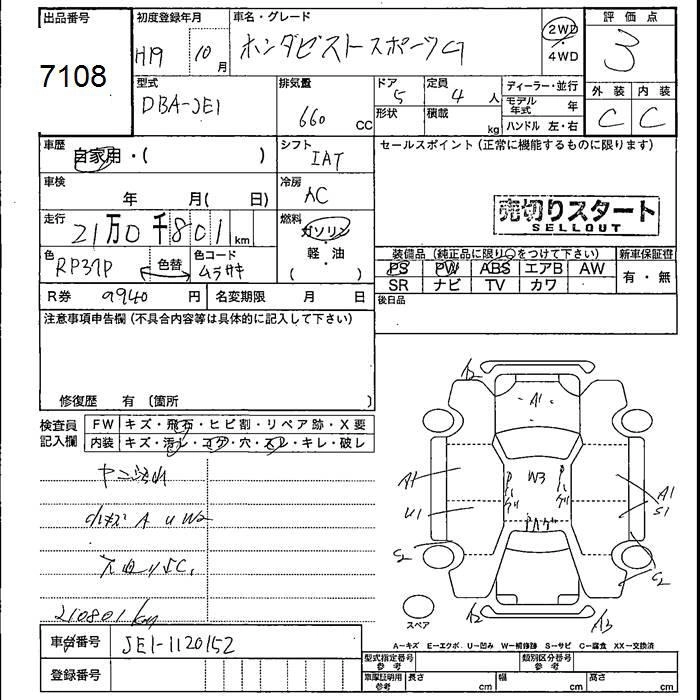 出品番号 初度登録年月 車名・グレード 評価点
7108 H19 10月 ホンダゼストスポーツG 2WD・4WD 3
型式 排気量 ドア 定員 ディーラー・並行 外装 内装
DBA-JE1 660 CC 5 4人 モデル年式 年 C C
形状 積載 kg ハンドル 左・右
車歴 自家用・( ) シフト IAT セールスポイント(正常に機能するものに限ります)
車検 年 月( 日) 冷房 AC
売切りスタート
SELLOUT
走行 21万0千801km 燃料 ガソリン
軽・油
( )
色 RP37P 色替 色コード ムラサキ
装備品(純正品に限り○をつけて下さい) 新車保証書
PS PW ABS エアB AW 有・無
SR ナビ TV カワ
R券 9940円 名変期限 月 日 後日品
注意事項申告欄(不具合内容等は具体的に記入して下さい)
修復歴 有(箇所 )
検査員記入欄 FW キズ・飛石・ヒビ割・リペア跡・X要
内装 キズ・汚レ・コゲ・穴・スレ・キレ・破レ
A2
A1
A1 W3 A1
U1 S1
S2 C2
A2 A3
スペア
小キズ A U W2
210801km
A-キズ E-エクボ U-凹み W-補修跡 S-サビ C-腐食 XX-交換済
車台番号 JE1-1120152
登録番号
型式指定番号 参考 類別区分番号 参考
車庫証明用 参考 長さ cm 幅 cm 高さ cm